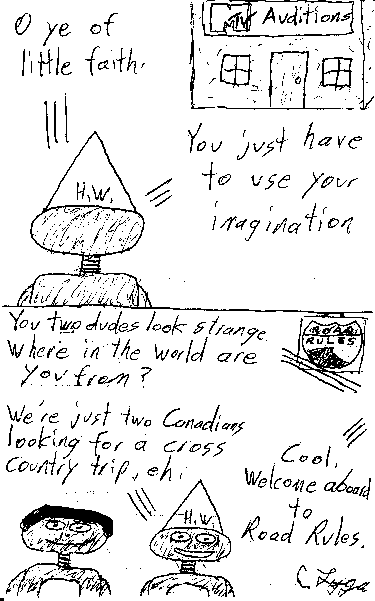 O ye of
little faith.
MTV Auditions
You just have
to use your
imagination
H.W.
You two dudes look strange.
Where in the world are
you from?
ROAD
RULES
We're just two Canadians
looking for a cross
country trip, eh.
Cool,
Welcome aboard
to
Road Rules.
H.W.
C. Lyga